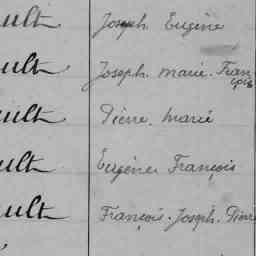 ult Joseph Eugène
ult Joseph. marie. Fran
çois
ult Pierre. marie
ult Eugène François
ult François. Joseph. Pierre